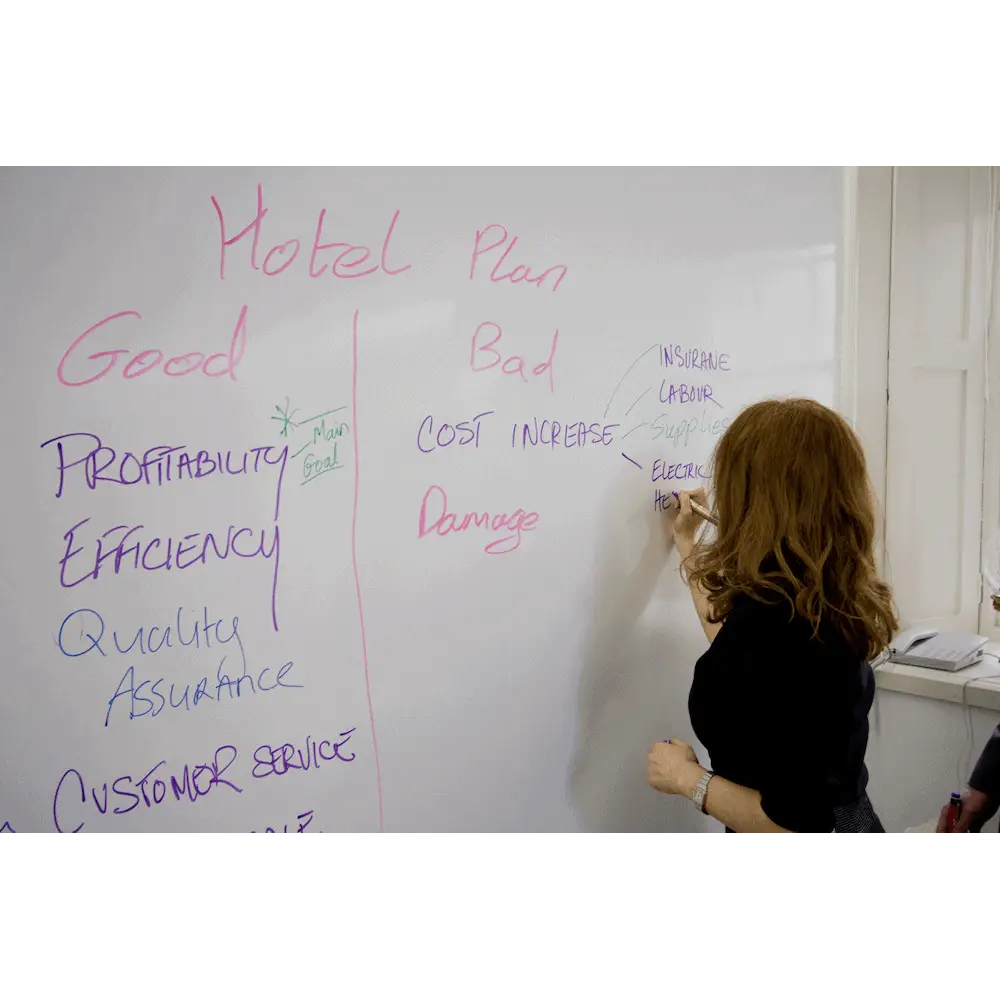 Hotel Plan
Good
PROFITABILITY
* Main
Goal
EFFICIENCY
Quality
ASSURANCE
CUSTOMER SERVICE
Bad
COST INCREASE
INSURANE
LABOUR
Supplies
ELECTRIC
Damage